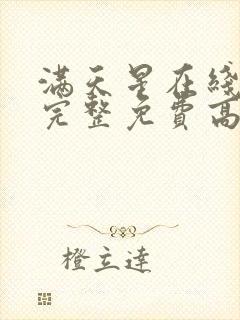 满天星在綫
完整免費高
橙立達